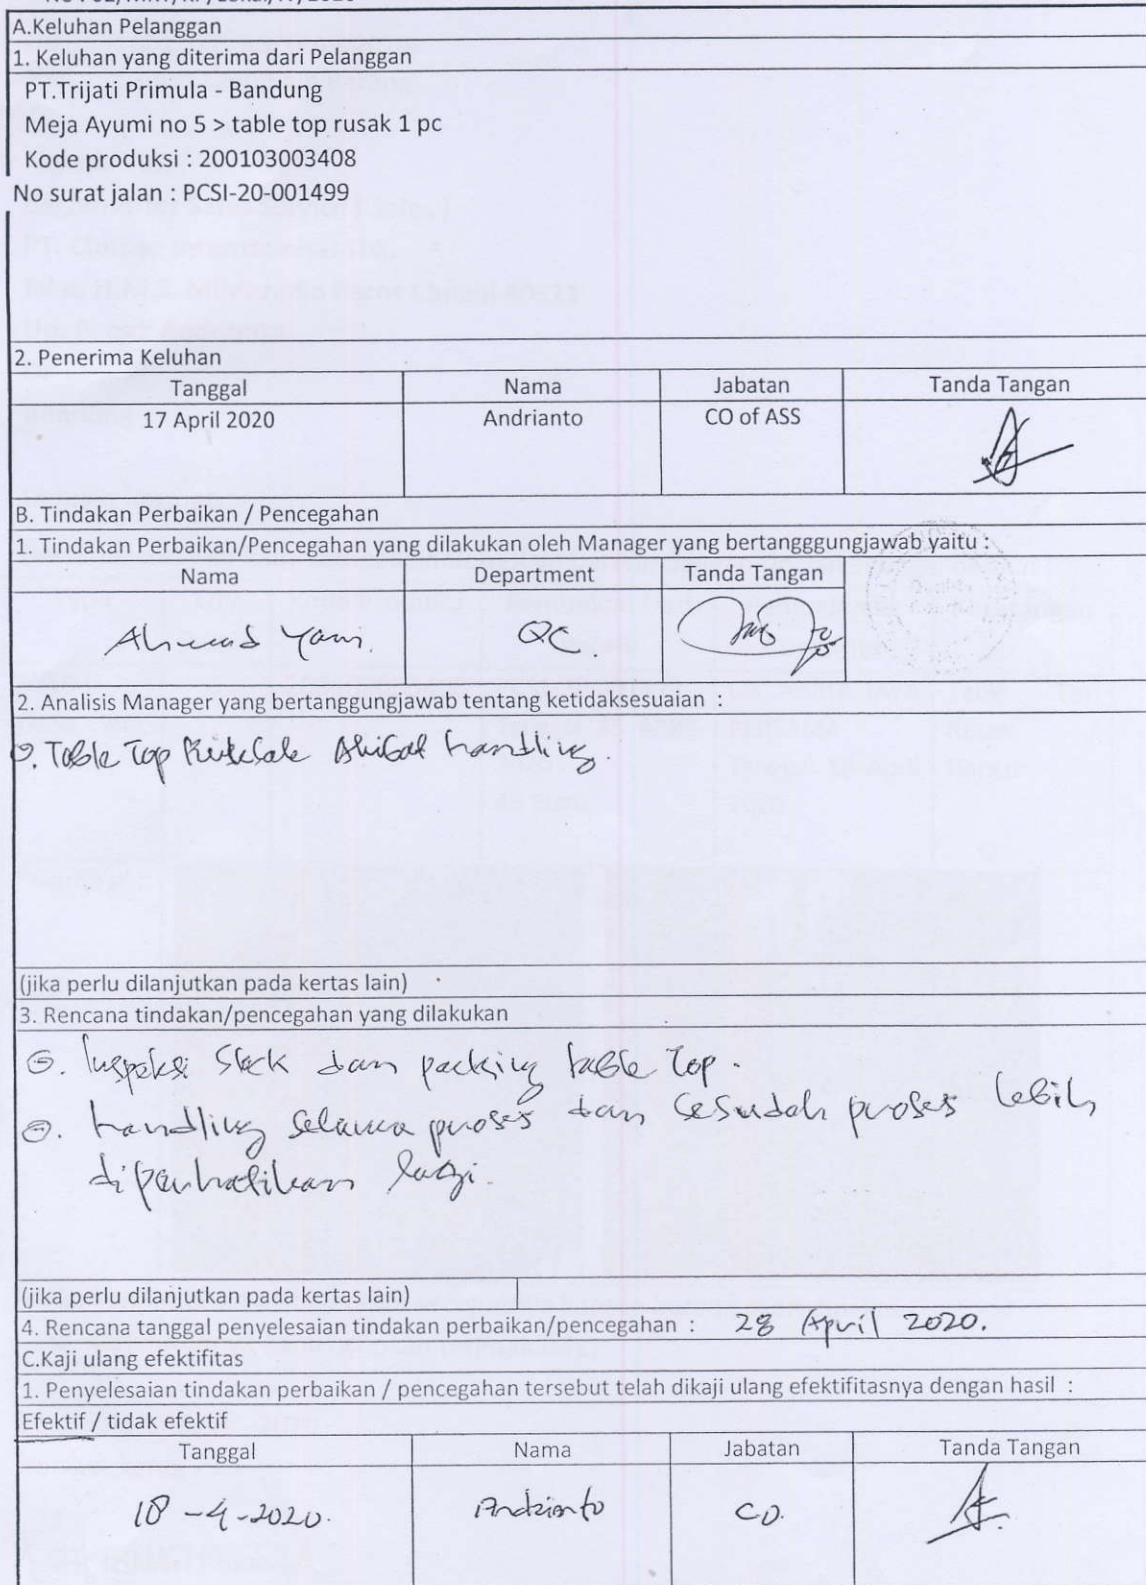 A.Keluhan Pelanggan
1. Keluhan yang diterima dari Pelanggan
PT.Trijati Primula - Bandung
Meja Ayumi no 5 > table top rusak 1 pc
Kode produksi : 200103003408
No surat jalan : PCSI-20-001499
2. Penerima Keluhan
Tanggal Nama Jabatan Tanda Tangan
17 April 2020 Andrianto CO of ASS
B. Tindakan Perbaikan / Pencegahan
1. Tindakan Perbaikan/Pencegahan yang dilakukan oleh Manager yang bertangggungjawab yaitu :
Nama Department Tanda Tangan
Ahmad Yani. QC.
2. Analisis Manager yang bertanggungjawab tentang ketidaksesuaian :
Table Top Akibat handling.
(jika perlu dilanjutkan pada kertas lain)
3. Rencana tindakan/pencegahan yang dilakukan
Inspeksi Stock dan packing table Top.
handling selama proses dan sesudah proses lebih
diperhatikan lagi.
(jika perlu dilanjutkan pada kertas lain)
4. Rencana tanggal penyelesaian tindakan perbaikan/pencegahan : 28 April 2020.
C.Kaji ulang efektifitas
1. Penyelesaian tindakan perbaikan / pencegahan tersebut telah dikaji ulang efektifitasnya dengan hasil :
Efektif / tidak efektif
Tanggal Nama Jabatan Tanda Tangan
18 -4-2020. Andrianto CO.